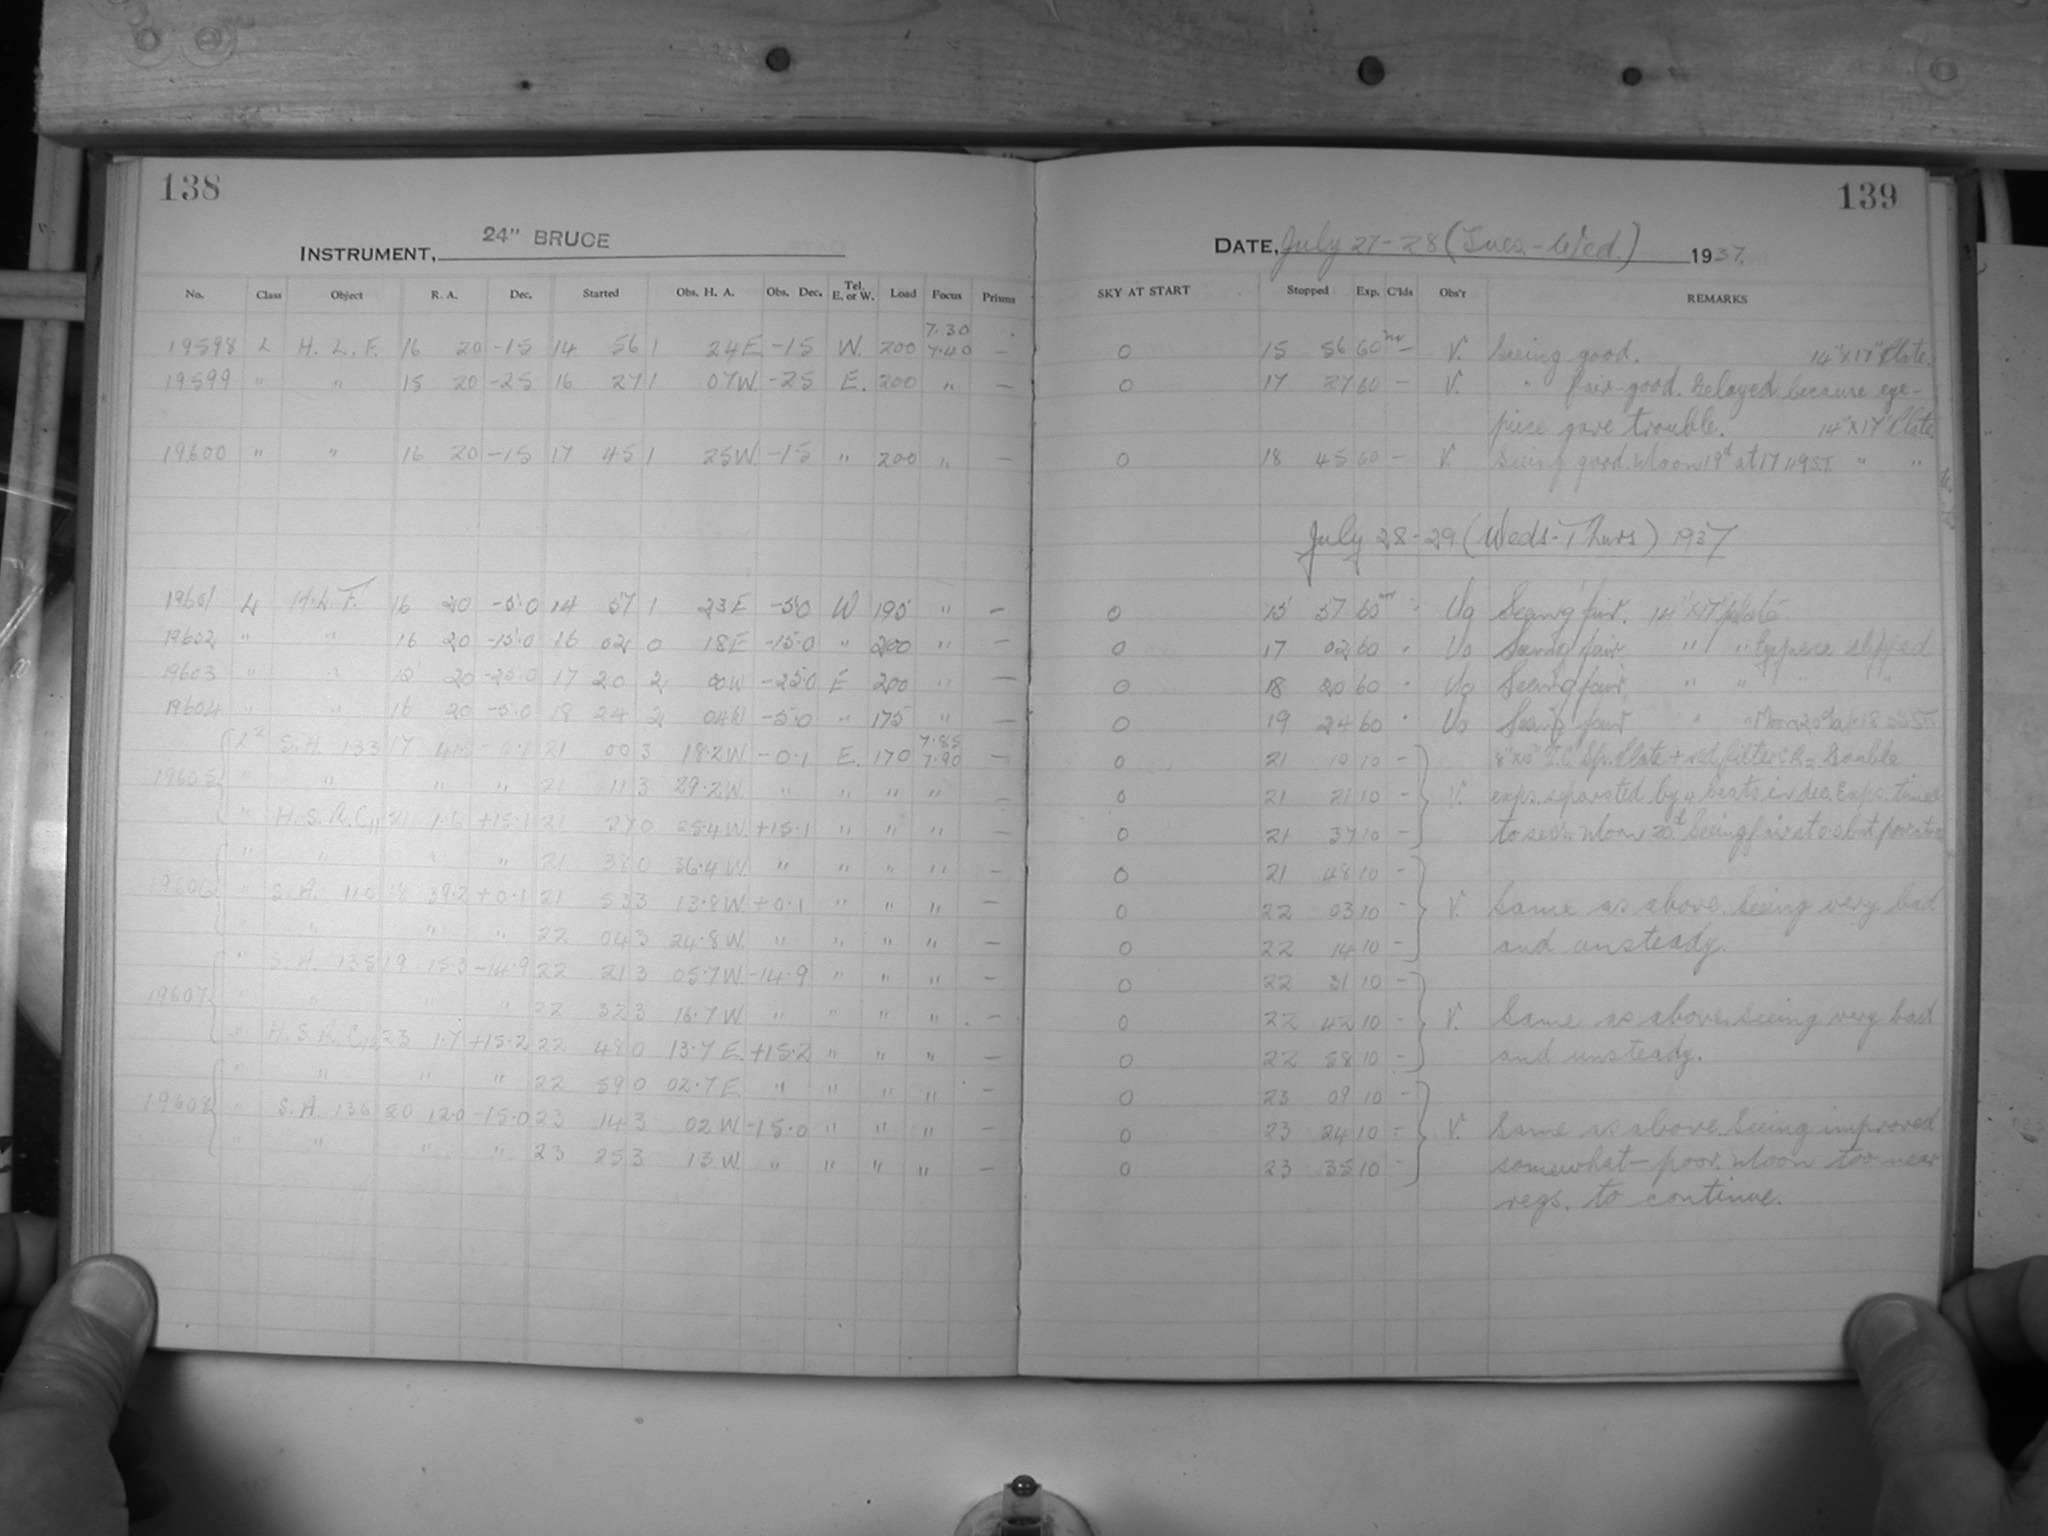 138
24" BRUCE
INSTRUMENT,
No. Class Object R. A. Dec. Started Obs. H. A. Obs. Dec. Tel. E. or W. Load Focus Prisms
7.30
19598 L H. L. F. 16 20 -15 14 56 1 24E -15 W. 200 7.40 —
19599 " " 15 20 -25 16 27 1 07W. -25 E. 200 " —
19600 " " 16 20 -15 17 45 1 25W. -15 " 200 " —
19601 L H.L.F. 16 20 -5.0 14 57 1 23E -5.0 W 195 " —
19602 " " 16 20 -15.0 16 02 0 18E -15.0 " 200 " —
19603 " " 15 20 -25.0 17 20 2 00W -25.0 E 200 " —
19604 " " 16 20 -5.0 18 24 2 04W -5.0 " 175 " —
L² S.A. 133 17 41.8 -0.1 21 00 3 18.2W -0.1 E. 170 7.85 7.90 —
19605 " " " " 21 11 3 29.2W. " " " " —
" H.S.R.C. 11 21 1.6 +15.1 21 27 0 25.4W. +15.1 " " " —
" " " " 21 38 0 36.4W. " " " " —
19606 " S.A. 110 18 39.2 +0.1 21 53 3 13.8W. +0.1 " " " —
" " " " 22 04 3 24.8W. " " " " —
" S.A. 135 19 15.3 -14.9 22 21 3 05.7W. -14.9 " " " —
19607 " " " " 22 32 3 16.7W. " " " " —
" H.S.R.C. 12 23 1.7 +15.2 22 48 0 13.7E. +15.2 " " " —
" " " " 22 59 0 02.7E. " " " " —
19608 " S.A. 136 20 12.0 -15.0 23 14 3 02W. -15.0 " " " —
" " " " 23 25 3 13W. " " " " —
139
DATE, July 27-28 (Tues.-Wed.) 1937.
SKY AT START Stopped Exp. C'lds Obs'r REMARKS
0 15 56 60 m — V. Seeing good. 14"x17" Plate.
0 17 27 60 — V. " fair-good. Delayed because eye-
piece gave trouble. 14"x17" Plate.
0 18 45 60 — V. Seeing good. Moon 19d at 17 49 S.T. " "
July 28-29 (Weds-Thurs) 1937
0 15 57 60 m Uo Seeing fair. 14"x17" plate
0 17 02 60 Uo Seeing fair " " Eyepiece slipped
0 18 20 60 Uo Seeing fair " " " "
0 19 24 60 Uo Seeing fair " " Moon 20d at 18
0 21 10 10 — 8"x10" Sp. Plate + red filter Double
0 21 21 10 — V. exps. separated by 4 beats in dec. Exps. timed
0 21 37 10 — to secs. Moon 20d. Seeing fair at
0 21 48 10 —
0 22 03 10 — V. Same as above. Seeing very bad
0 22 14 10 — and unsteady.
0 22 31 10 —
0 22 42 10 — V. Same as above. Seeing very bad
0 22 58 10 — and unsteady.
0 23 09 10 —
0 23 24 10 — V. Same as above. Seeing improved
0 23 35 10 — somewhat — poor. Moon too near
regs. to continue.